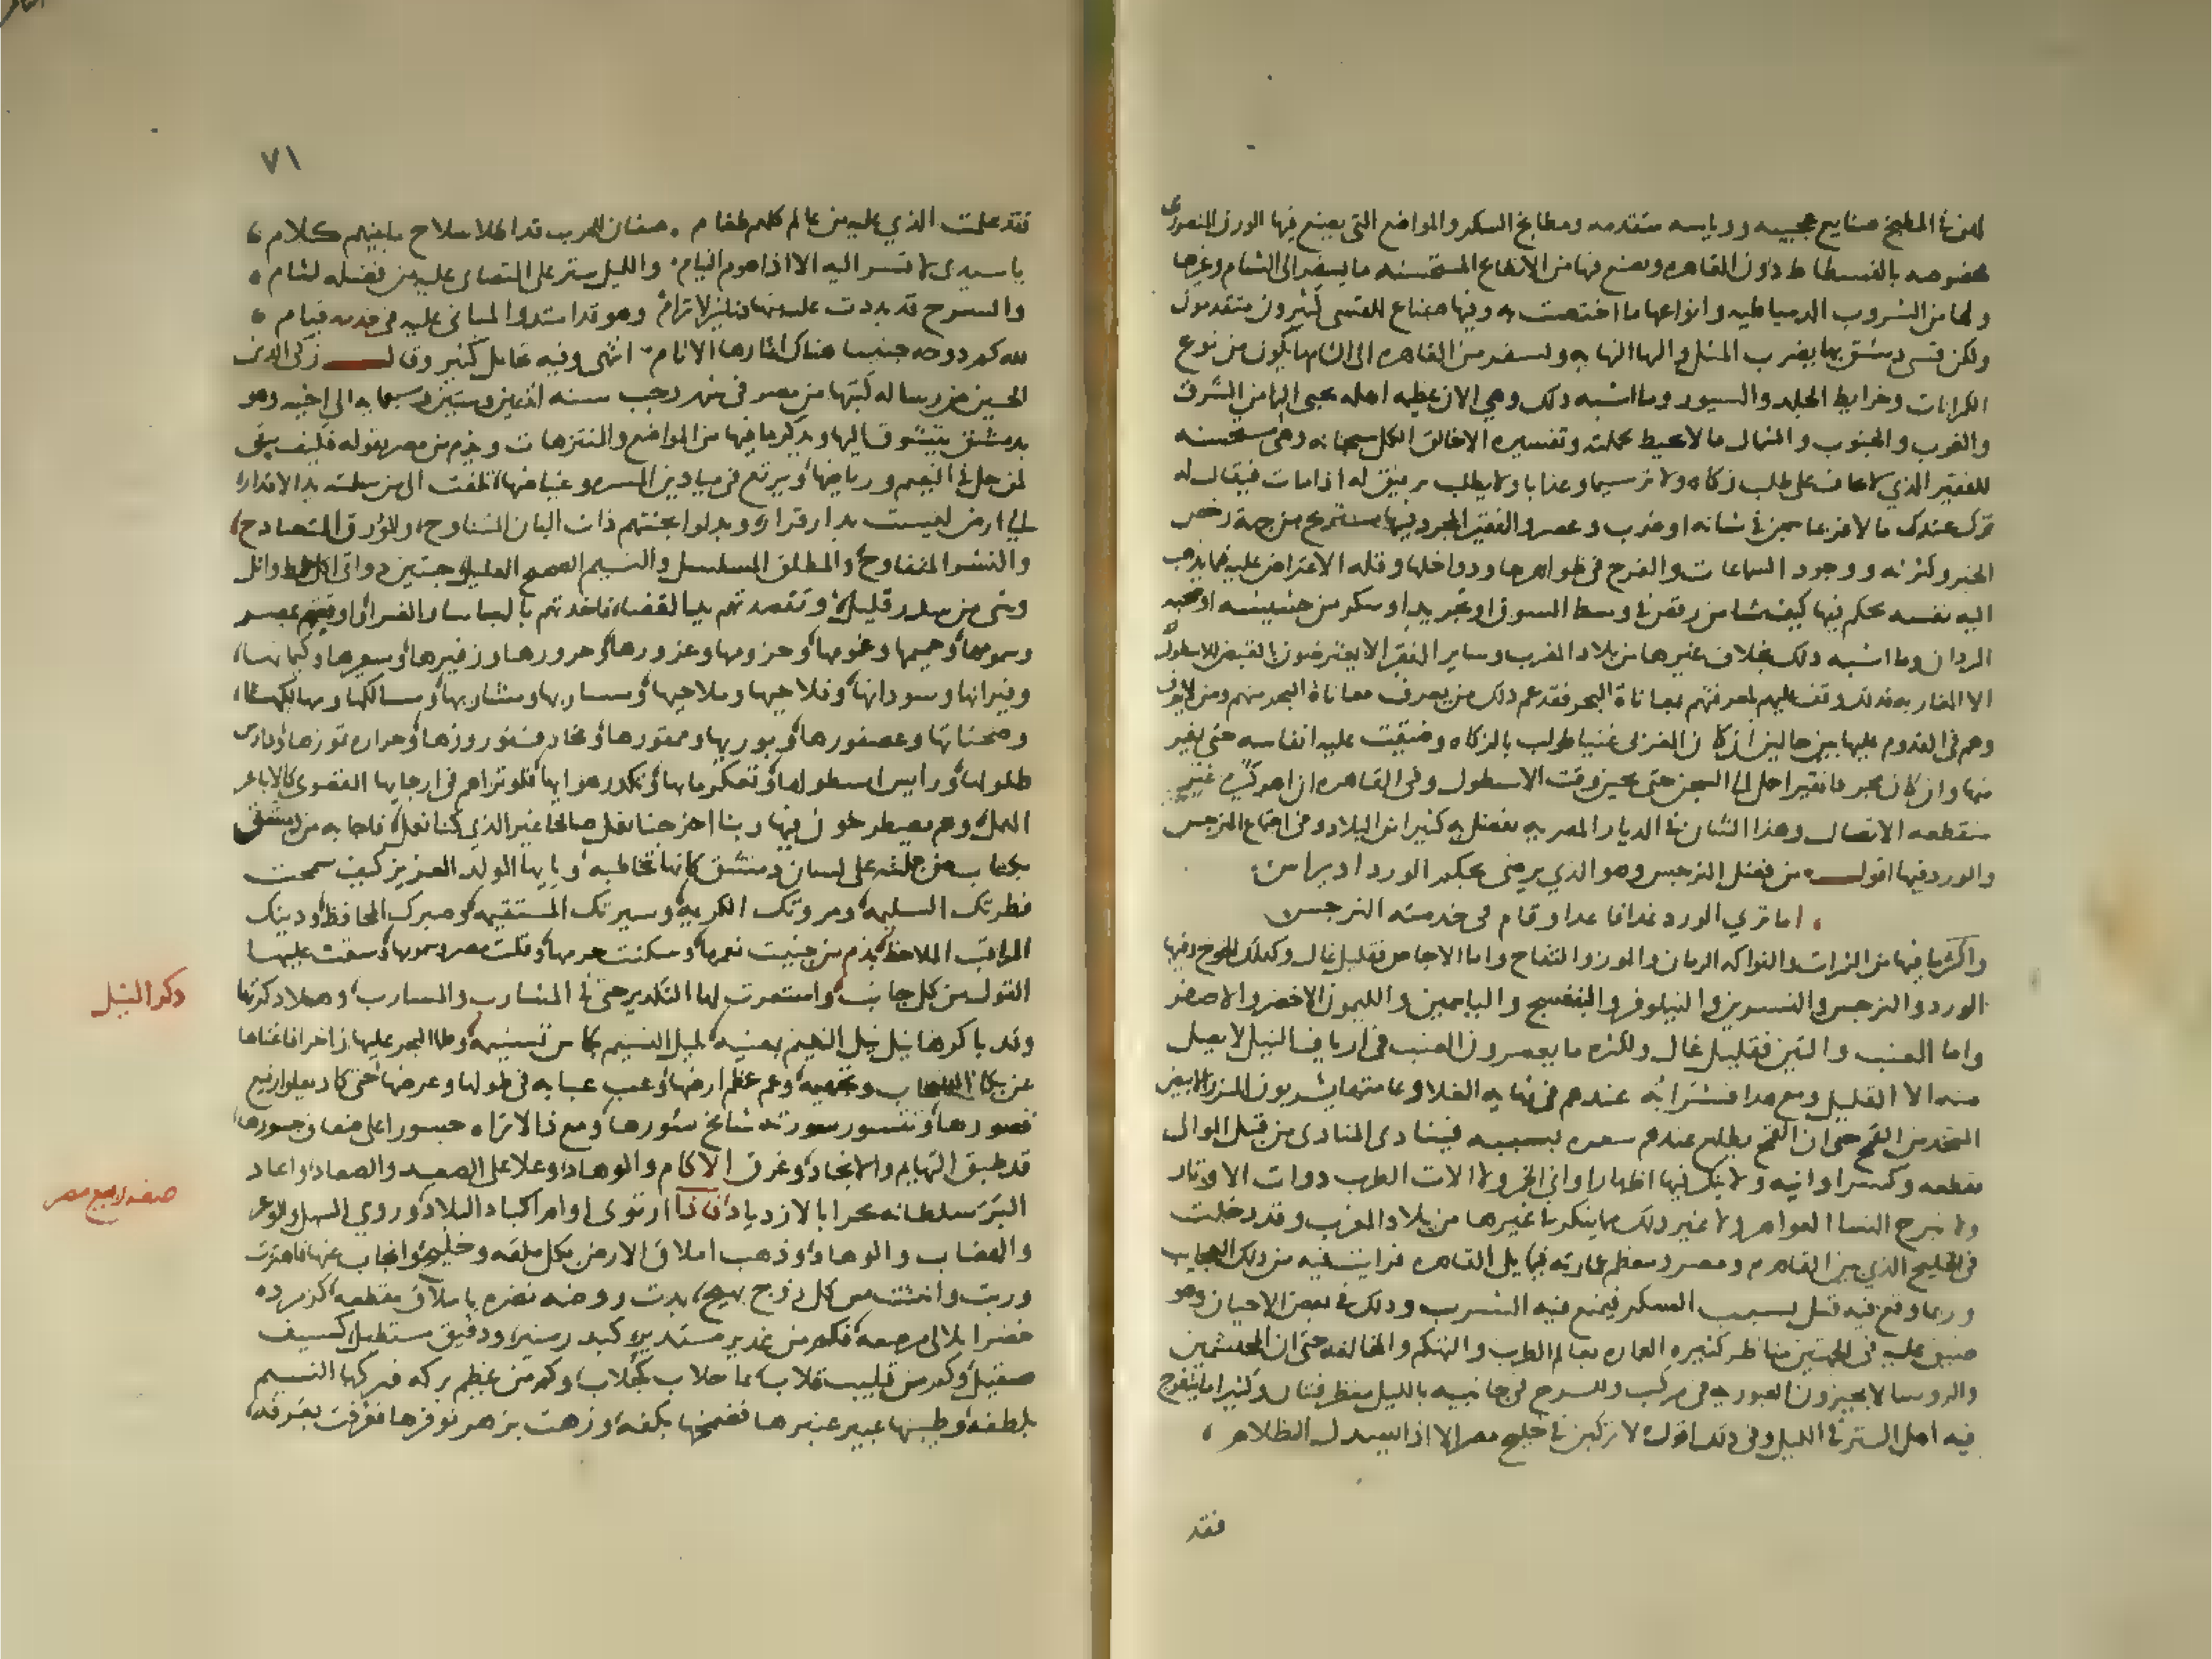 لهن في المطبخ صنايع عجيبه ورياسه متقدمه ومطابخ السكر والمواضع التي يصنع فيها الورق المنصوري
مخصوصه بالفسطاط دون القاهره ويصنع فيها من الانطاع المستحسنه ما يسفر الى الشام وغيرها
ولها من الشروب الدمياطيه وانواعها ما اختصت به وفيها صناع للقسي كثيرون متقدمون
ولكن قسي دمشق بها يضرب المثل واليها النهايه ويسفر من القاهره الى الشام ما يكون من نوع
الكرانات وخرايط الجلد والسيور وما اشبه ذلك وهي الان عظيمه اهله يجبى اليها من الشرق
والغرب والجنوب والشمال ما لا يحيط بجملته وتفسيره الا خالق الكل سبحانه وهي مستحسنه
للفقير الذي لا يخاف على طلب زكاه ولا ترسيما وعذابا ولا يطلب برفيق له اذا مات فيقال له
ترك عندك مالا فربما سجن في شانه او ضرب وعصر والفقير المجرد فيها مستريح من جهة رخص
الخبز وكثرته ووجود السماعات والفرج في ظواهرها ودواخلها وقله الاعتراض عليه فيما يذهب
اليه نفسه يحكم فيها كيف شا من رقص في وسط السوق او تجريد او سكر من حشيشه او صحبه
المردان وما اشبه ذلك بخلاف غيرها من بلاد المغرب وساير الفقرا لا يعترضون بالقبض للاسطول
الا المغاربه فذلك وقف عليهم لمعرفتهم بمعاناة البحر فقد عم ذلك من يعرف معاناة البحر منهم ومن لا يعرف
وهم في القدوم عليها بين حالين ان كان المغربي غنيا طولب بالزكاه وضيقت عليه انفاسه حتى يفر
منها وان كان مجردا فقيرا حمل الى السجن حتى يحين وقت الاسطول وفي القاهره ازاهر كثيره غير
منقطعه الاتصال وهذا الشان في الديار المصريه تفضل به كثيرا من البلاد وفي اجتماع النرجس
والورد فيها اقول من فضل النرجس وهو الذي يرضى بحكم الورد اذ يراس
اما ترى الورد غدا قاعدا وقام في خدمته النرجس
واكثر ما فيها من الثمرات والفواكه الرمان والموز والتفاح واما الاجاص فقليل غال وكذلك الخوخ وفيها
الورد والنرجس والنسرين والنيلوفر والبنفسج والياسمين والليمون الاخضر والاصفر
واما العنب والتين فقليل غال ولكثره ما يعصرون العنب في ارياف النيل لا يصل
منه الا القليل ومع هذا فشرابه عندهم في نهايه الغلا وعامتها يشربون المزر الابيض
المتخذ من القمح حتى ان القمح يطلع عندهم سعره بسببه فينادى المنادى من قبل الوالى
بقطعه وكسر اوانيه ولا ينكر فيها اظهار اواني الخمر ولا الات الطرب ذوات الاوتار
ولا تبرج النسا العواهر ولا غير ذلك مما ينكر في غيرها من بلاد المغرب وقد دخلت
في الخليج الذي بين القاهره ومصر ومعظم عمارته فيما يلي القاهره فرايت فيه من ذلك العجايب
وربما وقع فيه قتل بسبب السكر فيمنع فيه الشرب وذلك في بعض الاحيان وهو
ضيق عليه في الجهتين مناظر كثيره العماره بعالم الطرب والتهكم والمخالفه حتى ان المحتشمين
والروسا لا يجيزون العبور به في مركب وللسرج في جانبيه بالليل منظر فتان وكثيرا ما يتفرج
فيه اهل الستر في الليل وفي ذلك اقول لا تركبن في خليج مصر الا اذا اسدل الظلام
فقد
٧١
فقد علمت الذي عليه من عالم كلهم طغام . صفان للحرب قد اظلا سلاح ما بينهم كلام
يا سيدي لا تسر اليه الا اذا هوم النيام والليل ستر على التصابى عليه من فضله لثام
والسرج قد بددت عليه منها دنانير لا ترام وهو قد امتد والمباني عليه في خدمه قيام
لله كم دوحه جنينا هناك اثمارها الاثام انتهى وفيه تحامل كثير وقال زكي الدين
الحسين من رساله كتبها من مصر في شهر رجب سنه اثنتين وستين وسبعمايه الى اخيه وهو
بدمشق يتشوق اليها ويذكر ما فيها من المواضع والمتنزهات ويذم من مصر بقوله فكيف يبقى
لمن حل في النعيم ورياضها ويرتع في ميادين المسره وغياضها تلفت الى من سلمته يد الاقدار
الى ارض ليست بدار قرار وبدلوا بجنتهم ذات البان المتناوح والورق المتصادح
والنشر المتفاوح والمطلق المسلسل والنسيم الصحيح العليل جنتين ذواتى اكل خمط واثل
وشى من سدر قليل وتقصدتهم يد القضاء فاخذتهم بالباساء والضراء واوقعهم بمصر
وسمومها وحميمها وغومها وحزومها وعزورها وحرورها وزفيرها وسعيرها وكيمانها
ونيرانها وسودانها وفلاحيها وملاحيها ومساربها ومشاربها ومسالكها ومهالكها
وصحناتها وعصفورها وبوريها ومعقورها ومخاوم نوروزها وحراره تموزها وداوى
طلولها ورايس اسطولها وتعكر مايها وتكدر هوايها فلو تراهم في ارجايها القصوى كالاباعر
الهمل وهم يصطرخون فيها ربنا اخرجنا نعمل صالحا غير الذي كنا نعمل فاجابه من دمشق
بكتاب من جملته على لسان دمشق كانها تخاطبه وياايها الولد العزيز كيف سمحت
فطرتك السليمه ومروتك الكريمه وسيرتك المستقيمه وصبرك المحافظ ودينك
المراقب الملاحظ بذم من جنيت نعمها وسكنت حرمها وقلت مصر وسمومها وسقت عليها
القول من كل جانب واستمرت لها التكدير حتى في المشارب والمسارب وهلا ذكرتها
وقد باكرها نيل نيل النعيم بعينه لميل النسيم بكاس تسنيمه وطما البحر عليها زاخرا فاغناها
عن بكاء السحاب وتجهمه وعم عظم ارضها وعب عبابه في طولها وعرضها حتى كاد يعلو رفيع
قصورها وتتسور سورته شامخ سورها ومع ذا لا تراه جسورا على ضعاف جسورها
قد طبق التهايم والانجاد وغرق الاكام والوهاد وعلا على الصعيد والصعاد واعاد
البر سلطانه بحرا بالازدياد فاذا ارتوى اوام اكباد البلاد وروى السهل والوعر
والهضاب والوهاد وذهب املاق الارض بكل ملقه وخليج وانجاب عنها فاهتزت
وربت وانبتت من كل زوج بهيج بدت روضه نضره باملاق مقطعه كزمرده
خضرا بلالى مرصعه فكم من غدير مستدير كبدر منير ودقيق مستطيل كسيف
صقيل وكم من قليب قلاب بماء حلاب كجلاب وكم من عظيم بركه فركها النسيم
بلطفه وطيبها عبير عنبرها فضمخها بكفه وزهت بزهر نوفرها فعرفت بعرفه
ذكر النيل
صفه ربيع مصر